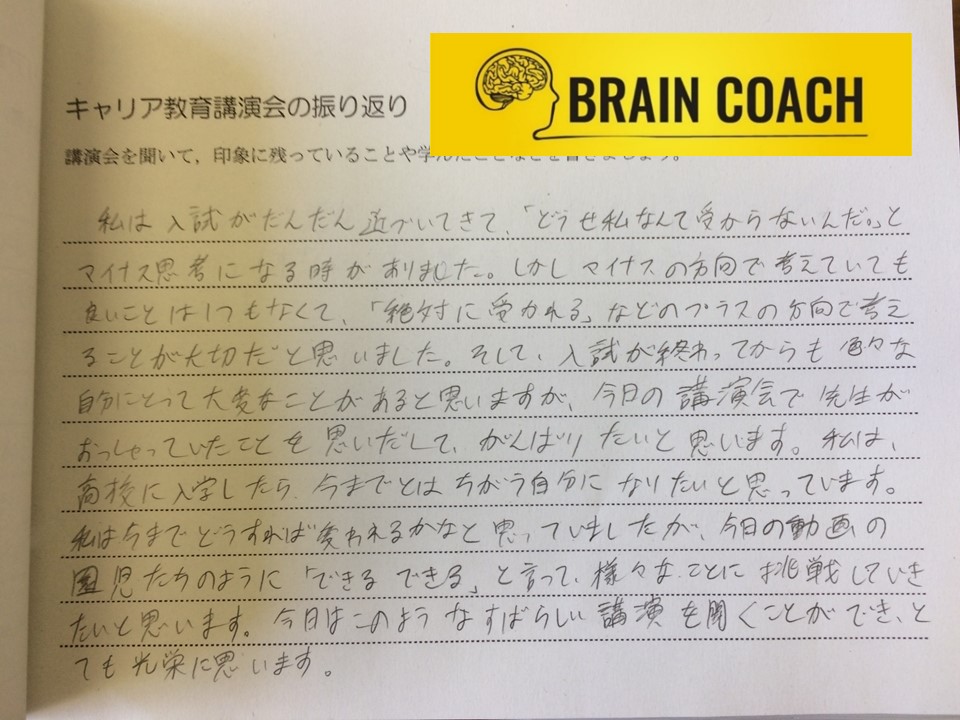 BRAIN COACH
キャリア教育講演会の振り返り
講演会を聞いて，印象に残っていることや学んだことなどを書きましょう。
私は入試がだんだん近づいてきて、「どうせ私なんて受からないんだ。」と
マイナス思考になる時がありました。しかしマイナスの方向で考えていても
良いことは1つもなくて、「絶対に受かれる」などのプラスの方向で考え
ることが大切だと思いました。そして、入試が終わってからも色々な
自分にとって大変なことがあると思いますが、今日の講演会で先生が
おっしゃっていたことを思いだして、がんばりたいと思います。私は、
高校に入学したら、今までとはちがう自分になりたいと思っています。
私は今までどうすれば変われるかなと思っていましたが、今日の動画の
園児たちのように「できるできる」と言って、様々なことに挑戦していき
たいと思います。今日はこのようなすばらしい講演を聞くことができ、と
ても光栄に思います。